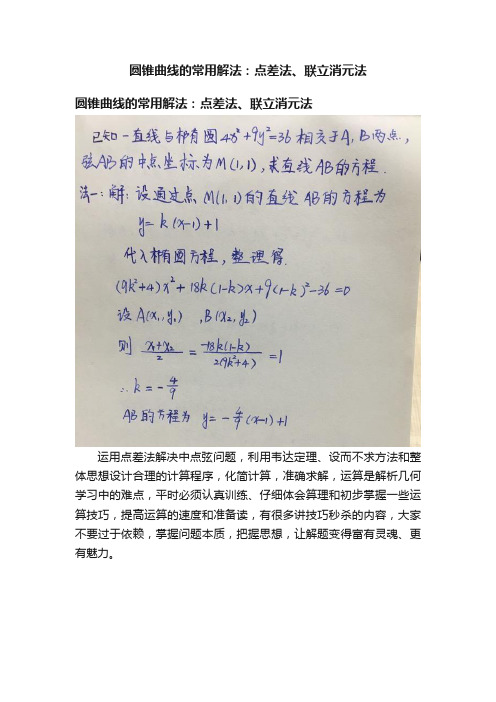 圆锥曲线的常用解法：点差法、联立消元法
圆锥曲线的常用解法：点差法、联立消元法
已知一直线与椭圆4x²+9y²=36相交于A,B两点,
弦AB的中点坐标为M(1,1),求直线AB的方程.
法一:解:设通过点M(1,1)的直线AB的方程为
y=k(x-1)+1
代入椭圆方程,整理得
(9k²+4)x²+18k(1-k)x+9(1-k)²-36=0
设A(x₁,y₁),B(x₂,y₂)
则 (x₁+x₂)/2 = -18k(1-k)/2(9k²+4) =1
∴k=-4/9
AB的方程为 y=-4/9(x-1)+1
运用点差法解决中点弦问题，利用韦达定理、设而不求方法和整
体思想设计合理的计算程序，化简计算，准确求解，运算是解析几何
学习中的难点，平时必须认真训练、仔细体会算理和初步掌握一些运
算技巧，提高运算的速度和准备读，有很多讲技巧秒杀的内容，大家
不要过于依赖，掌握问题本质，把握思想，让解题变得富有灵魂、更
有魅力。